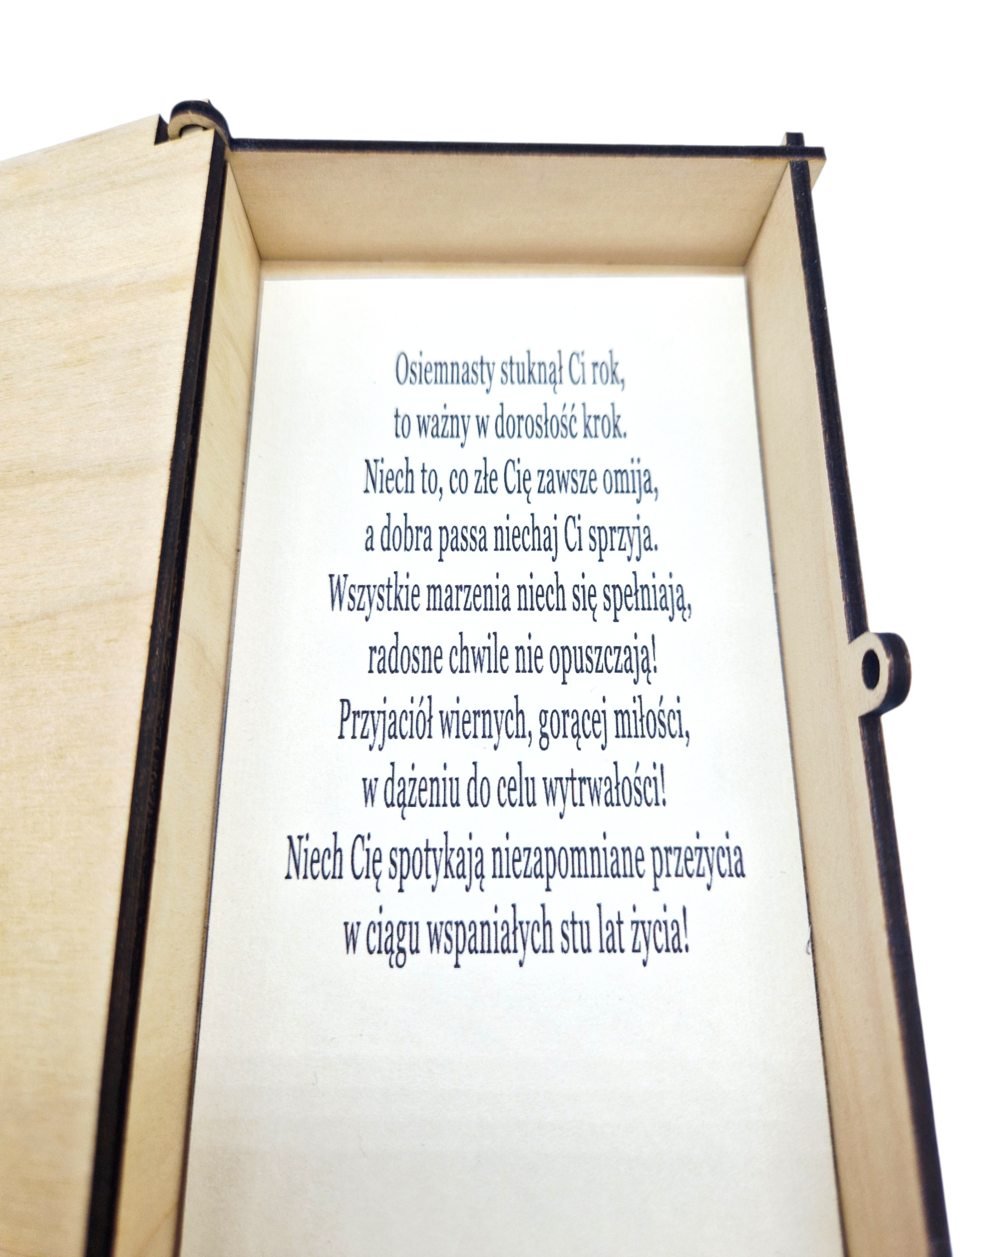 Osiemnasty stuknął Ci rok,
to ważny w dorosłość krok.
Niech to, co złe Cię zawsze omija,
a dobra passa niechaj Ci sprzyja.
Wszystkie marzenia niech się spełniają,
radosne chwile nie opuszczają!
Przyjaciół wiernych, gorącej miłości,
w dążeniu do celu wytrwałości!
Niech Cię spotykają niezapomniane przeżycia
w ciągu wspaniałych stu lat życia!